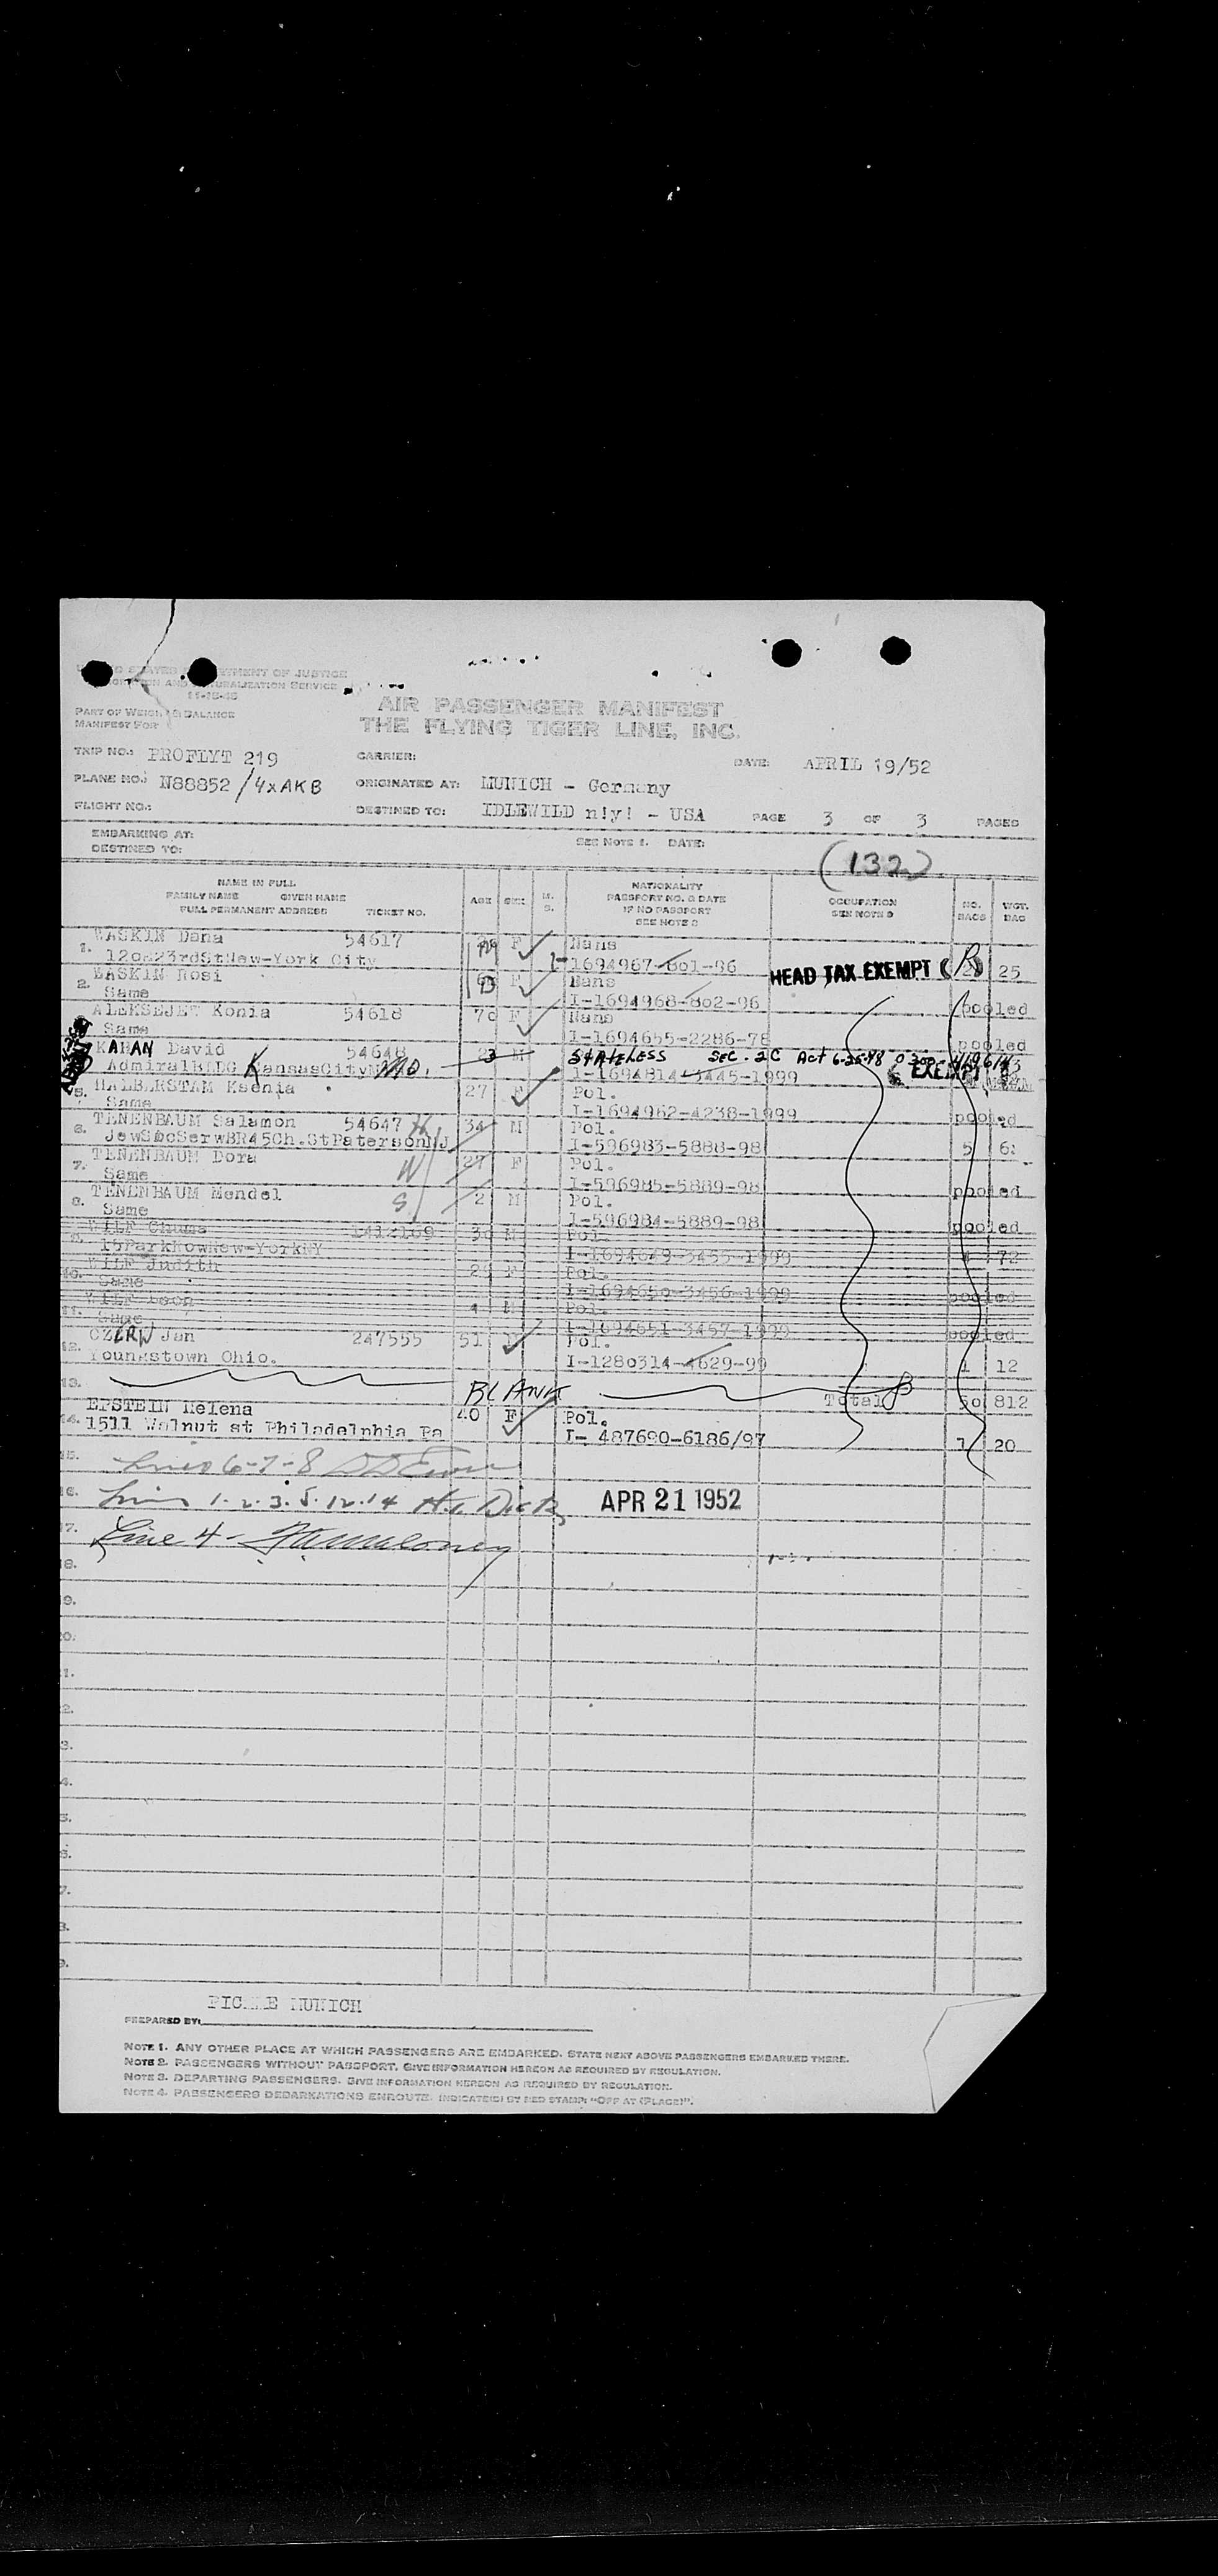 UNITED STATES DEPARTMENT OF JUSTICE
IMMIGRATION AND NATURALIZATION SERVICE
11-18-48
PART OF WEIGHT & BALANCE
MANIFEST FOR
AIR PASSENGER MANIFEST
THE FLYING TIGER LINE, INC.
TRIP NO.: PROFLYT 219 CARRIER: DATE: APRIL 19/52
PLANE NO.: N88852 /4xAKB ORIGINATED AT: MUNICH - Germany
FLIGHT NO.: DESTINED TO: IDLEWILD n!y! - USA PAGE 3 OF 3 PAGES
EMBARKING AT: SEE NOTE 1. DATE:
DESTINED TO:
(132)
NAME IN FULL NATIONALITY
FAMILY NAME GIVEN NAME AGE SEX M. S. PASSPORT NO. & DATE OCCUPATION NO. WGT.
FULL PERMANENT ADDRESS TICKET NO. IF NO PASSPORT SEE NOTE 3 BAGS BAG
SEE NOTE 2
1. WASKIN Dana 54617 F Nans
120w23rdStNew-York City I-1694967-801-96 HEAD TAX EXEMPT 25
2. WASKIN Rosi F Nans
Same I-1694968-802-96 pooled
ALEKSEJET Konia 54618 70 F Nans
Same I-1694655-2286-78 pooled
KAHAN David 54648 23 M STATELESS SEC. 2C Act 6-25-48
AdmiralBLDG KansasCity MO. I-1694814-3445-1999 EXEMPT
5. HALBERSTAM Ksenia 27 F Pol.
Same I-1694962-4238-1999 pooled
6. TENENBAUM Salamon 54647 H 34 M Pol.
JewSocSerwBR45Ch.StPatersonNJ I-596983-5888-98 5
7. TENENBAUM Dora W 27 F Pol.
Same I-596985-5889-98 pooled
8. TENENBAUM Mendel S 2 M Pol.
Same I-596984-5889-98 pooled
WILF Chuma 30 M Pol.
15ParkRowNew-YorkNY I-1694649-3455-1999 72
10. WILF Judith 29 F Pol.
Same I-1694650-3456-1999 pooled
11. WILF Leon 4 M Pol.
Same I-1694651-3457-1999 pooled
12. CZERW Jan 247555 51 M Pol.
Youngstown Ohio. I-1280314-4629-99 1 12
13. BLANK Total 50 812
14. EPSTEIN Helena 40 F Pol.
1511 Walnut st Philadelphia Pa I- 487690-6186/97 1 20
15. Lines 6-7-8
16. Lines 1-2-3-5-12-14 APR 21 1952
17. Line 4 -
18.
19.
20.
MUNICH
PREPARED BY:
NOTE 1. ANY OTHER PLACE AT WHICH PASSENGERS ARE EMBARKED. STATE NEXT ABOVE PASSENGERS EMBARKED THERE.
NOTE 2. PASSENGERS WITHOUT PASSPORT. GIVE INFORMATION HEREON AS REQUIRED BY REGULATION.
NOTE 3. DEPARTING PASSENGERS. GIVE INFORMATION HEREON AS REQUIRED BY REGULATION.
NOTE 4. PASSENGERS DEBARKATIONS ENROUTE. INDICATE(D) BY RED STAMP: "OFF AT (PLACE)".